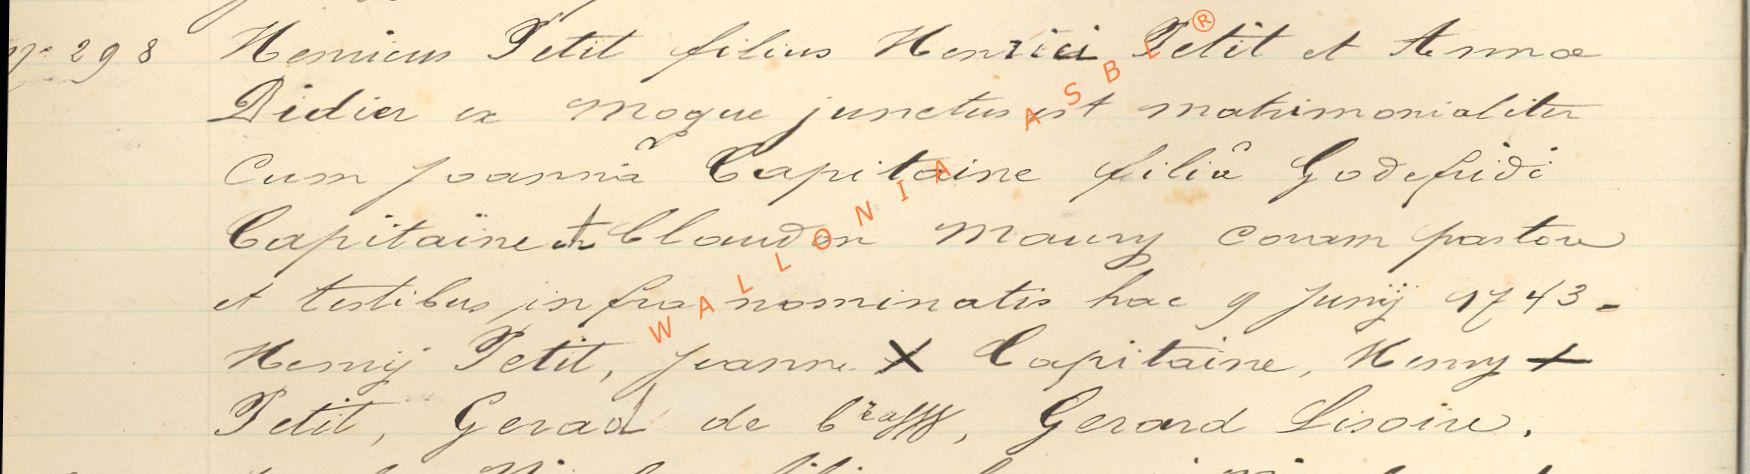 N° 298 Henricus Petit filius Henrici Petit et Annæ
Didier ex Mogue junctus est matrimonialiter
cum Joannâ Capitaine filiâ Godefridi
Capitaine et Claudon Maury coram pastore
et testibus infra nominatis hac 9 Junij 1743 -
Henrij Petit, Joanne X Capitaine, Henry +
Petit, Gerad de, Gerard Lisoire.
WALLONIA ASBL ®